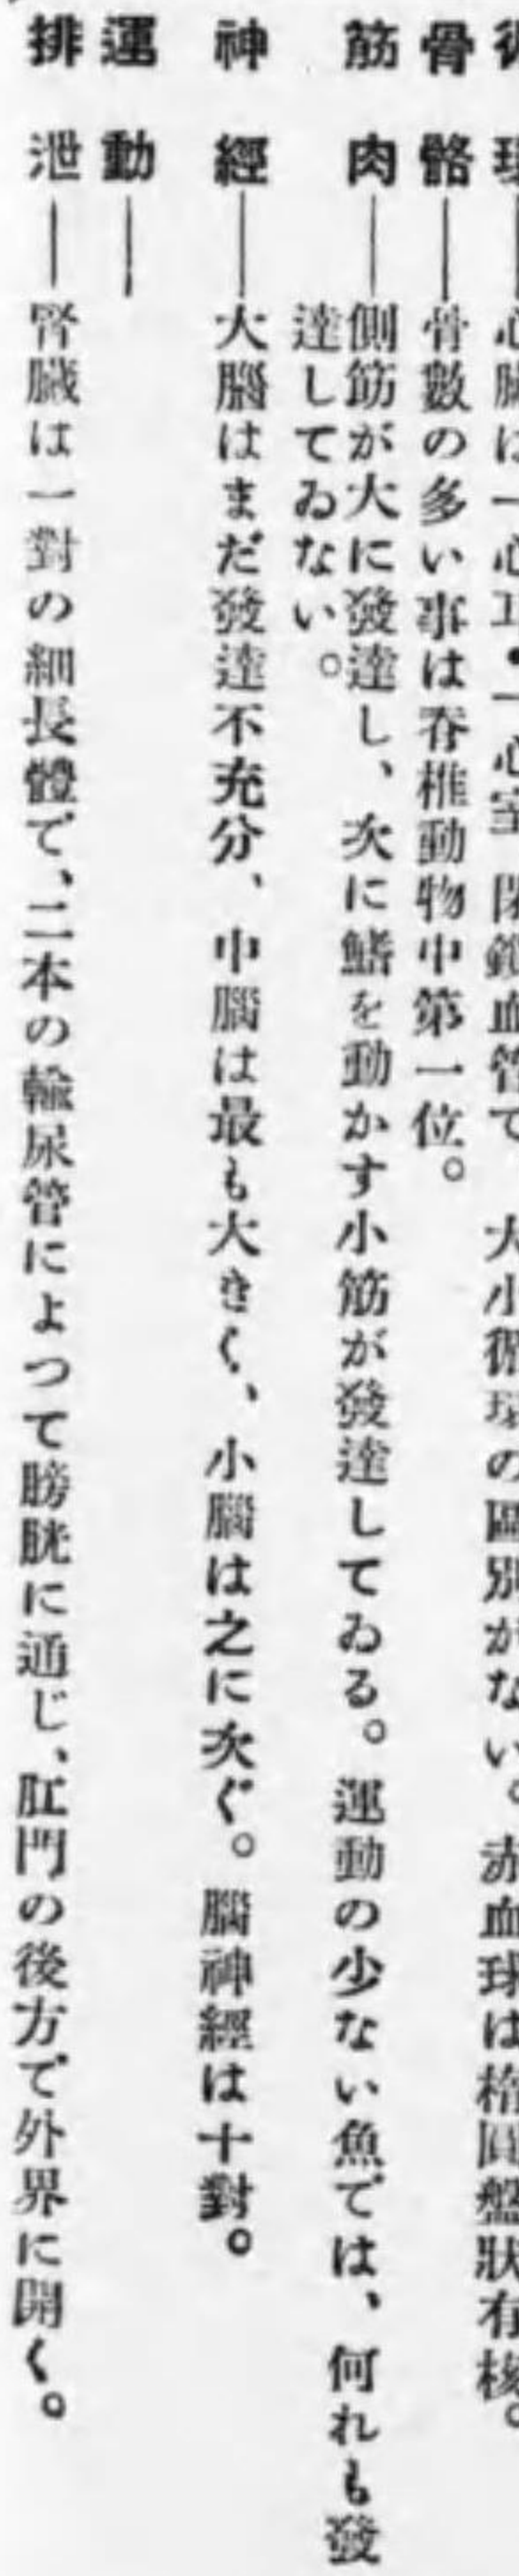 環――心臟は一心耳・一心室 閉鎖血管で 大小循環の區別がない。赤血球は楕圓盤狀有核。
骨骼――骨數の多い事は脊椎動物中第一位。
筋肉――側筋が大に發達し、次に鰭を動かす小筋が發達してゐる。運動の少ない魚では、何れも發
達してゐない。
神經――大腦はまだ發達不充分、中腦は最も大きく、小腦は之に次ぐ。腦神經は十對。
運動――
排泄――腎臟は一對の細長體で、二本の輸尿管によつて膀胱に通じ、肛門の後方で外界に開く。